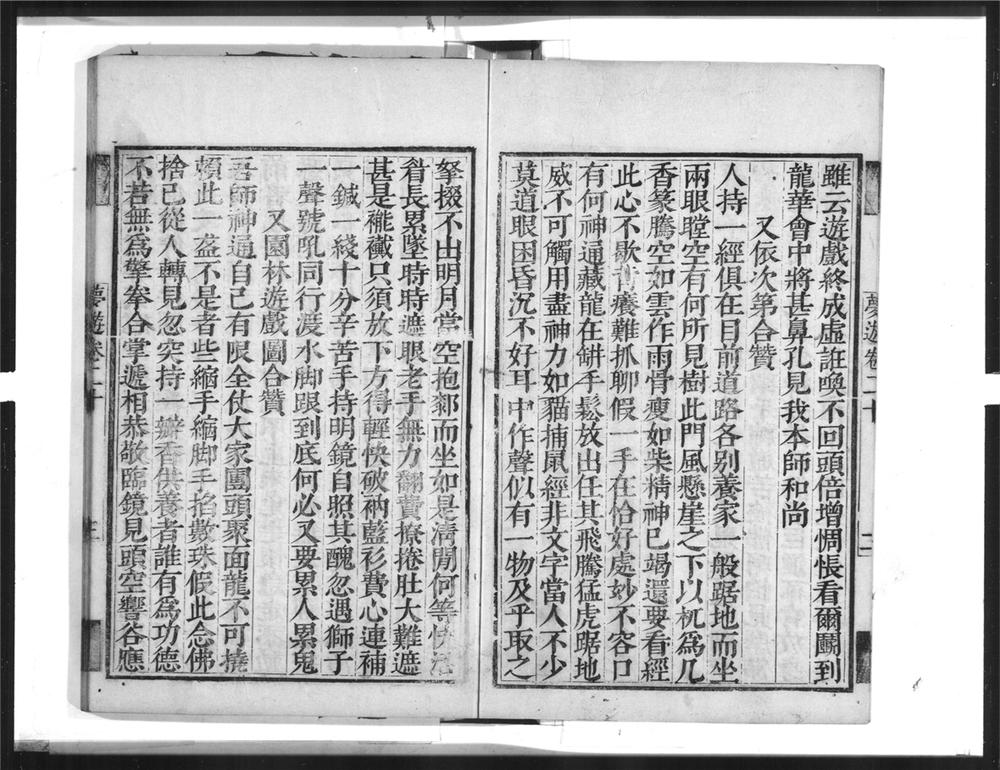 雖云遊戲終成虛誑喚不回頭倍增惆悵看爾鬬到
龍華會中將甚鼻孔見我本師和尚
又依次第合贊
人持一經俱在目前道路各別養家一般踞地而坐
兩眼瞠空有何所見樹此門風懸崖之下以杌為几
香篆騰空如雲作雨骨瘦如柴精神已竭還要看經
此心不歇背癢難抓聊假一手在恰好處妙不容口
有何神通藏龍在鉢手鬆放出任其飛騰猛虎踞地
威不可觸用盡神力如貓捕鼠經非文字當人不少
莫道眼困昏沉不好耳中作聲似有一物及乎取之
夢遊卷二十
二
拏掇不出明月當空抱厀而坐如是清閒何等快活
眉長累墜時時遮眼老手無力翻費撩捲肚大難遮
甚是襹襶只須放下方得輕快破衲藍衫費心連補
一鍼一綫十分辛苦手持明鏡自照其醜忽遇獅子
一聲號吼同行渡水脚跟到底何必又要累人累鬼
又園林遊戲圖合贊
吾師神通自己有限全仗大家團頭聚面龍不可撓
賴此一盋不是者些縮手縮脚手掐數珠假此念佛
捨己從人轉見忽突持一瓣香供養者誰有為功德
不若無為擎拳合掌遞相恭敬臨鏡見頭空響答應
夢遊卷二十
三